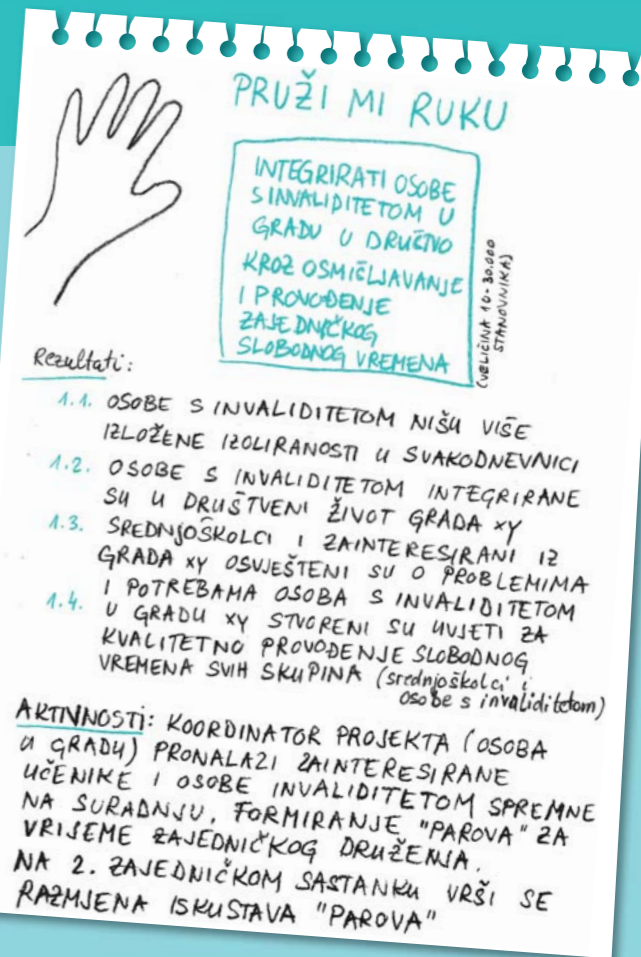 PRUŽI MI RUKU
INTEGRIRATI OSOBE
S INVALIDITETOM U
GRADU U DRUČTVO
KROZ OSMIČLJAVANJE
I PROVOĐENJE
ZAJEDNIČKOG
SLOBODNOG VREMENA
(VELIČINA 10-30.000
STANOVNIKA)
Rezultati:
1.1. OSOBE S INVALIDITETOM NIŠU VIŠE
IZLOŽENE IZOLIRANOSTI U SVAKODNEVNICI
1.2. OSOBE S INVALIDITETOM INTEGRIRANE
SU U DRUŠTVENI ŽIVOT GRADA XY
1.3. SREDNJOŠKOLCI I ZAINTERESIRANI IZ
GRADA XY OSVJEŠTENI SU O PROBLEMIMA
I POTREBAMA OSOBA S INVALIDITETOM
1.4. U GRADU XY STVORENI SU UVJETI ZA
KVALITETNO PROVOĐENJE SLOBODNOG
VREMENA SVIH SKUPINA (srednjoškolci i
osobe s invaliditetom)
AKTIVNOSTI: KOORDINATOR PROJEKTA (OSOBA
U GRADU) PRONALAZI ZAINTERESIRANE
UČENIKE I OSOBE INVALIDITETOM SPREMNE
NA SURADNJU. FORMIRANJE "PAROVA" ZA
VRIJEME ZAJEDNIČKOG DRUŽENJA.
NA 2. ZAJEDNIČKOM SASTANKU VRŠI SE
RAZMJENA ISKUSTAVA "PAROVA"